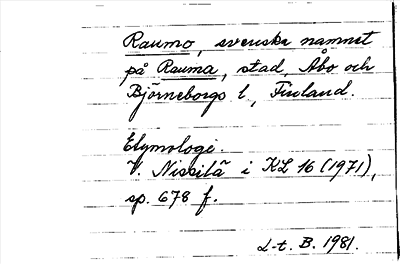 Raumo, svenska namnet
på Rauma, stad, Åbo och
Björneborgs l., Finland.
Etymologi.
V. Nissilä i KL 16 (1971),
sp. 678 f.
L-t. B. 1981.